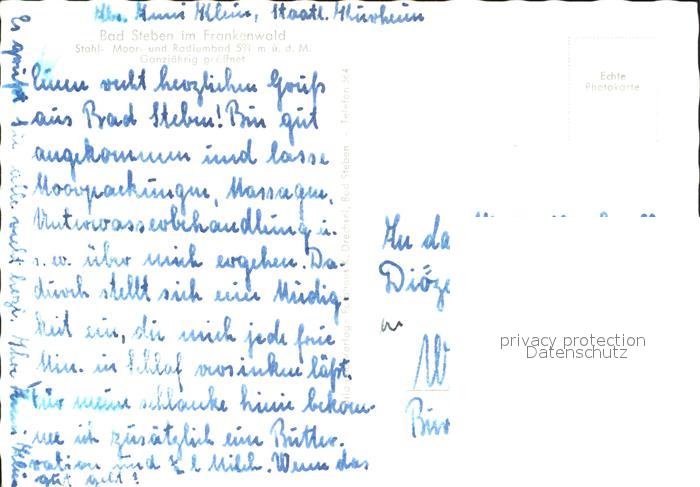 Abs. Anni Klein, Staatl. Kurheim
Bad Steben im Frankenwald
Stahl- Moor- und Radiumbad 591 m ü. d. M.
Ganzjährig geöffnet
Echte
Photokarte
Einen recht herzlichen Gruß
aus Bad Steben! Bin gut
angekommen und lasse
Moorpackungen, Massagen,
Unterwasserbehandlung u.
s. w. über mich ergehen. Da-
durch stellt sich eine Müdig-
keit ein, die mich jede freie
Min. in Schlaf versinken läßt.
Für meine schlanke Linie bekom-
me ich zusätzlich eine Butter-
ration und ½ l Milch. Wenn das
gut geht!
Es grüßt Sie alle recht herzl. Ihre Anni Klein
Drechsel, Bad Steben - Telefon 364
An da
Diöze
W
Bür
privacy protection
Datenschutz